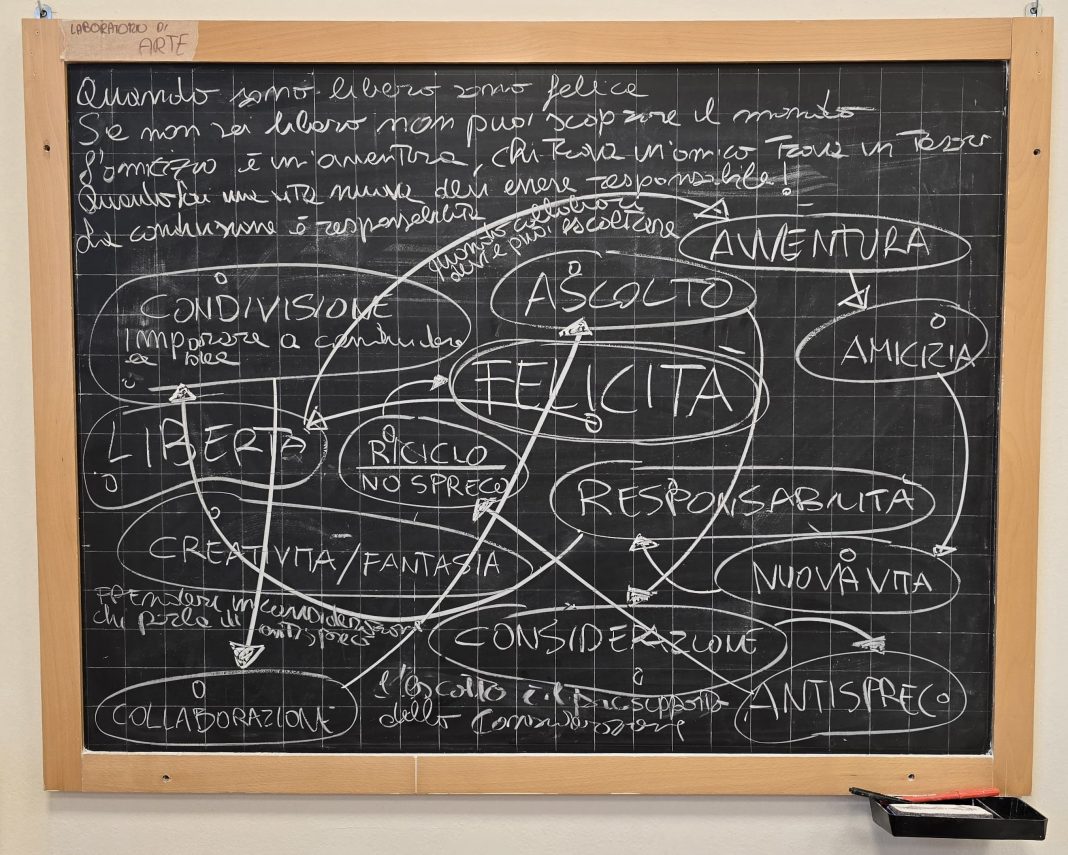 LABORATORIO DI
ARTE
Quando sono libero sono felice
Se non sei libero non puoi scoprire il mondo
L'amicizia è un'avventura, chi trova un'amico trova un tesoro
Quando hai una vita nuova devi essere responsabile!
La condivisione è responsabilità
Quando collabori
devi e puoi ascoltare
AVVENTURA
ASCOLTO
CONDIVISIONE
imparare a condividere
le idee
AMICIZIA
FELICITA
LIBERTA
RICICLO
NO SPRECO
RESPONSABILITÀ
CREATIVITA/FANTASIA
NUOVA VITA
PRENDERE in considerazione
chi parla di antispreco
CONSIDERAZIONE
ANTISPRECO
L'ascolto è il presupposto
della considerazione
COLLABORAZIONE